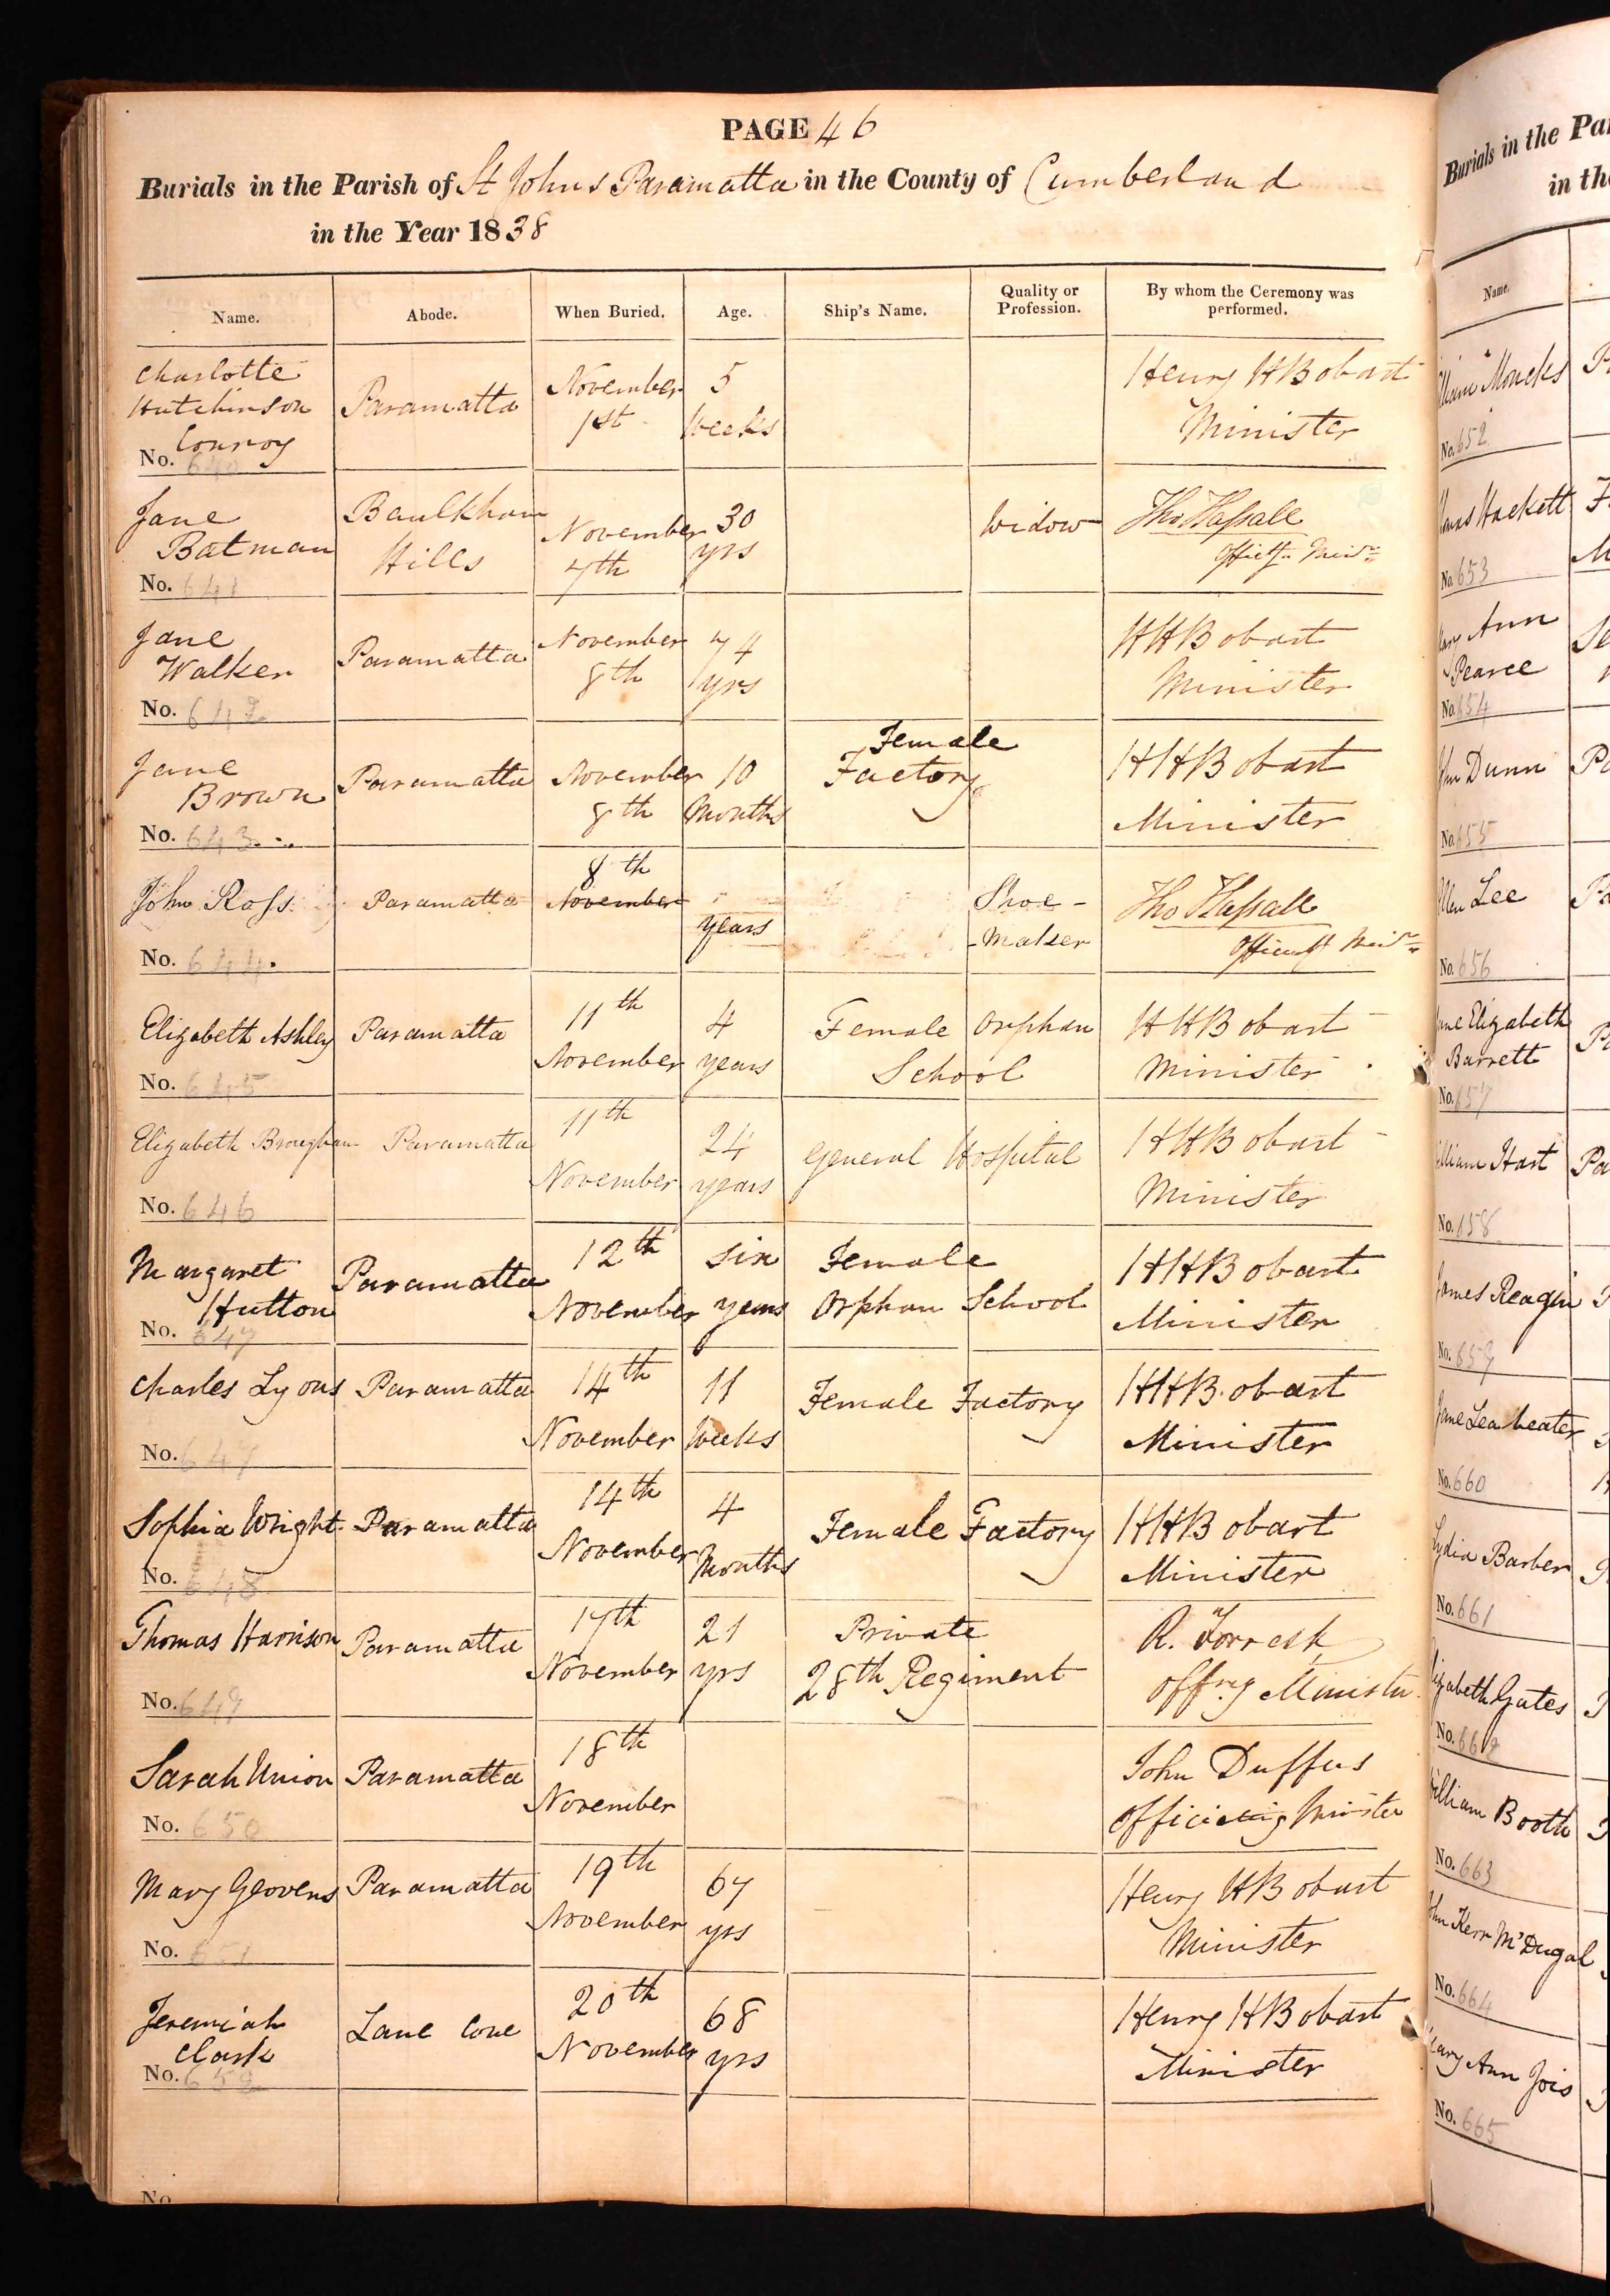 PAGE 46
Burials in the Parish of St Johns Paramatta in the County of Cumberland
in the Year 1838
Name. Abode. When Buried. Age. Ship's Name. Quality or Profession. By whom the Ceremony was performed.
Charlotte Hutchinson Conroy Paramatta November 1st 5 Weeks Henry H Bobart Minister
No. 640
Jane Batman Baulkham Hills November 7th 30 yrs Widow Tho Hassall
No. 641
Jane Walker Paramatta November 8th 74 yrs HHBobart Minister
No. 642
Jane Brown Paramatta November 8th 10 Months Female Factory HHBobart Minister
No. 643
John Ross Paramatta 8th November years Shoe-maker Tho Hassall
No. 644
Elizabeth Ashley Paramatta 11th November 4 years Female Orphan School HHBobart Minister
No. 645
Elizabeth Brougham Paramatta 11th November 24 years General Hospital HHBobart Minister
No. 646
Margaret Hutton Paramatta 12th November Six years Female Orphan School HHBobart Minister
No. 647
Charles Lyons Paramatta 14th November 11 Weeks Female Factory HHBobart Minister
No. 647
Sophia Wright Paramatta 14th November 4 Months Female Factory HHBobart Minister
No. 648
Thomas Harrison Paramatta 17th November 21 yrs Private 28th Regiment R. Forrest Offng Minister
No. 649
Sarah Union Paramatta 18th November John Duffus Officiating Minister
No. 650
Mary Geovens Paramatta 19th November 67 yrs Henry HBobart Minister
No. 651
Jeremiah Clark Lane Cove 20th November 68 yrs Henry HBobart Minister
No. 652
No
Burials in the Par
in the
Name.
Moncks
No. 652
Hackett
No. 653
Ann Pearce
No. 654
Dunn
No. 655
Lee
No. 656
Elizabeth Barrett
No. 657
Hart
No. 658
James Reagin
No. 659
Jane Leabeater
No. 660
Lydia Barber
No. 661
Gates
No. 662
William Booth
No. 663
Kerr McDugal
No. 664
Ann Jois
No. 665